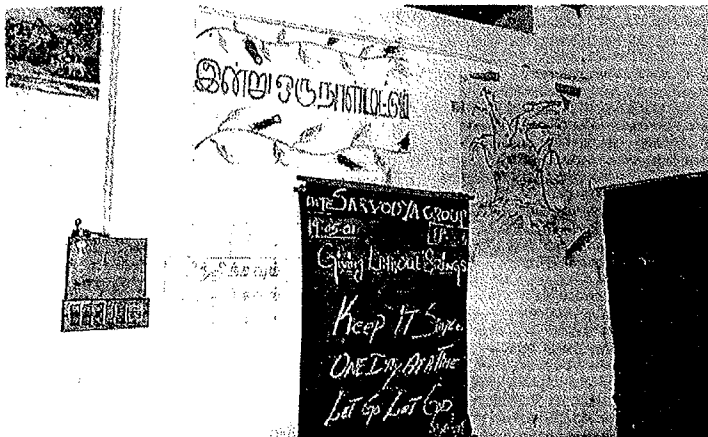 இன்று ஒரு நாள் மட்டும்
THE SARVODYA GROUP
19.05.01
Giving Without Strings
KEEP IT Simple
ONE DAY AT A TIME
LET Go LET GOD